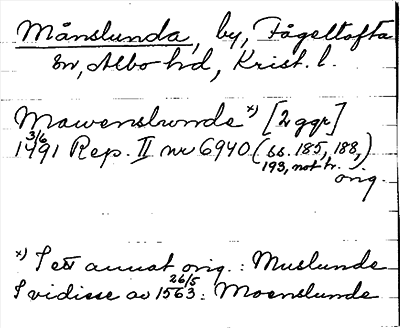 Månslunda, by, Fågeltofta
sn, Albo hd, Krist. l.
Mawenslwnde x) [2 ggr]
3/6 1491 Rep. II nr 6940 (ss. 185, 188,
193, not tr.)
orig.
x) I ett annat orig.: Muslunde
I vidisse av 26/5 1563: Moenslunde